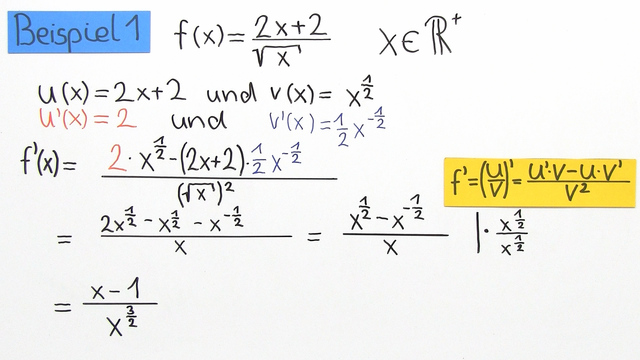 Beispiel 1
f(x) = (2x+2)/√x  x ∈ ℝ⁺
u(x) = 2x+2 und v(x) = x^(1/2)
u'(x) = 2 und v'(x) = 1/2 x^(-1/2)
f'(x) = (2 · x^(1/2) − (2x+2) · 1/2 x^(-1/2))/(√x)²
f' = (u/v)' = (u'·v − u·v')/v²
= (2x^(1/2) − x^(1/2) − x^(-1/2))/x = (x^(1/2) − x^(-1/2))/x | · x^(1/2)/x^(1/2)
= (x − 1)/x^(3/2)